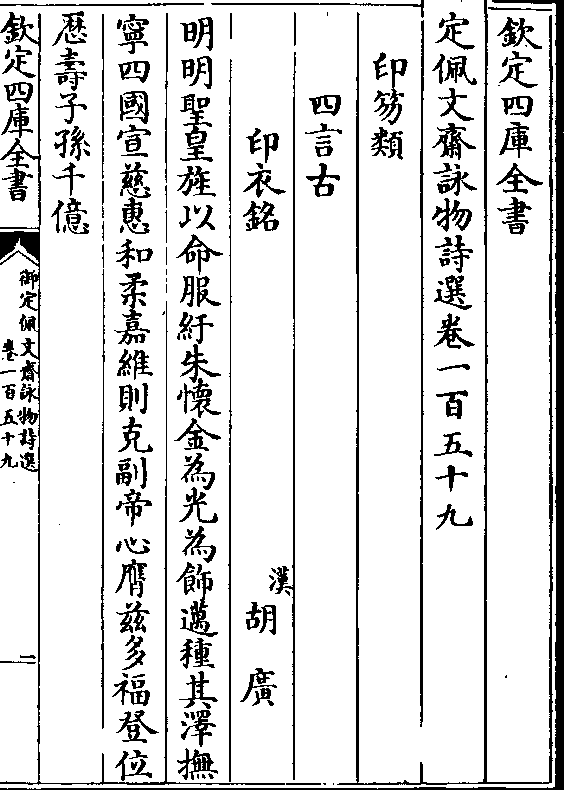 欽定四庫全書
定佩文齋詠物詩選卷一百五十九
印笏類
四言古
印衣銘
漢
胡廣
明明聖皇旌以命服紆朱懷金為光為飾邁種其澤撫
寧四國宣慈惠和柔嘉維則克副帝心膺兹多福登位
歷壽子孫千億
欽定四庫全書
御定佩文齋詠物詩選
卷一百五十九
一